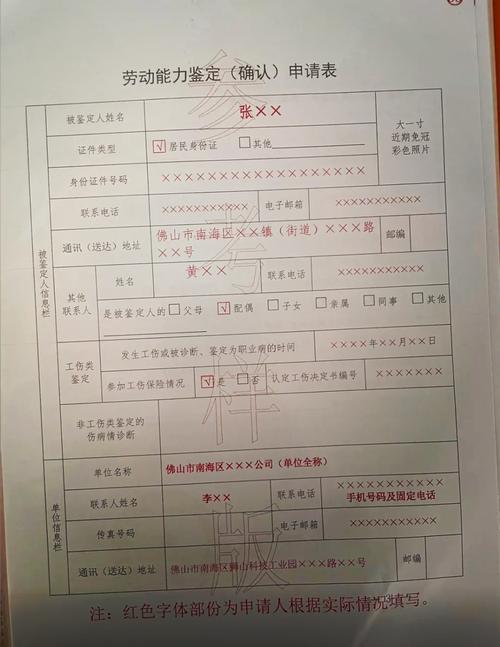 劳动能力鉴定（确认）申请表
被鉴定人信息栏
被鉴定人姓名 张××
大一寸
近期免冠
彩色照片
证件类型 ☑居民身份证 □其他
身份证件号码 ××××××××××××××××××
联系电话 ××××××××××× 电子邮箱 ×××××××××××
通讯（送达）地址 佛山市南海区××镇（街道）×××路
××号 邮编
其他
联系人
姓名 黄×× 联系电话 ×××××××××××
是被鉴定人的□父母 ☑配偶 □子女 □亲属 □同事 □其他
工伤类
鉴定
发生工伤或被诊断、鉴定为职业病的时间 ××××年××月××日
参加工伤保险情况 ☑是 □否 认定工伤决定书编号 ×××××××
非工伤类鉴定的
伤病情诊断
单位信息栏
单位名称 佛山市南海区×××公司（单位全称）
联系人姓名 李×× 联系电话 ×××××××××××
手机号码及固定电话
传真号码 电子邮箱 ×××××××××××
通讯（送达）地址 佛山市南海区狮山科技工业园×××路××号 邮编
注：红色字体部份为申请人根据实际情况填写。
参考样版